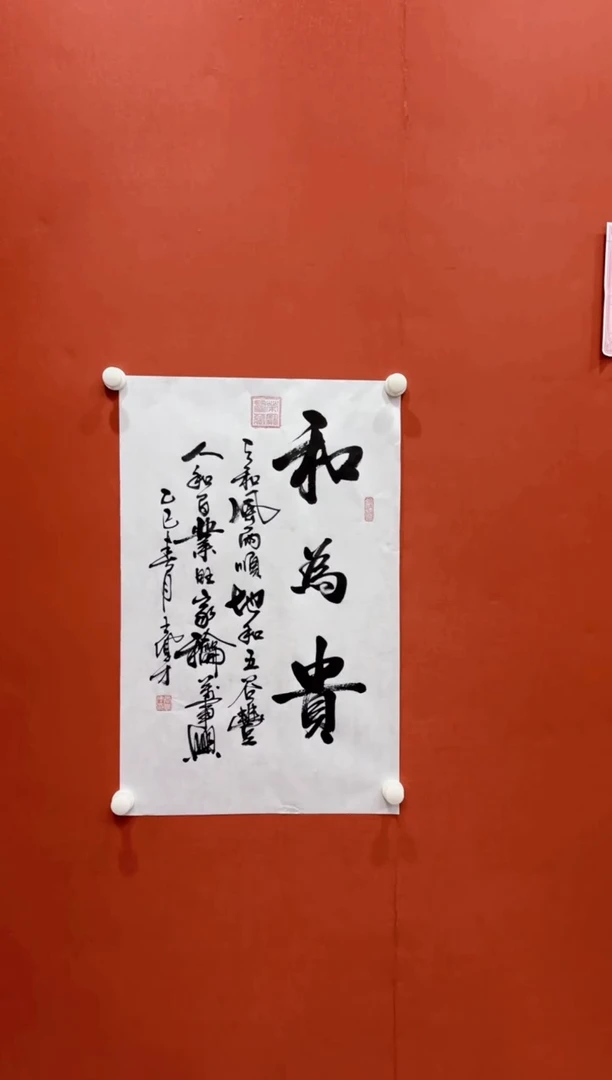 和為貴
天和風雨順地和五谷豐
人和百業旺家和萬事興
乙巳春月